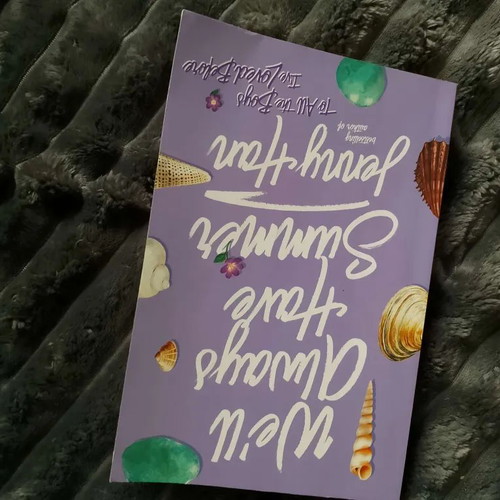 We'll
Always
Have
Summer
Jenny Han
bestselling
author of
To All the Boys
I've Loved Before